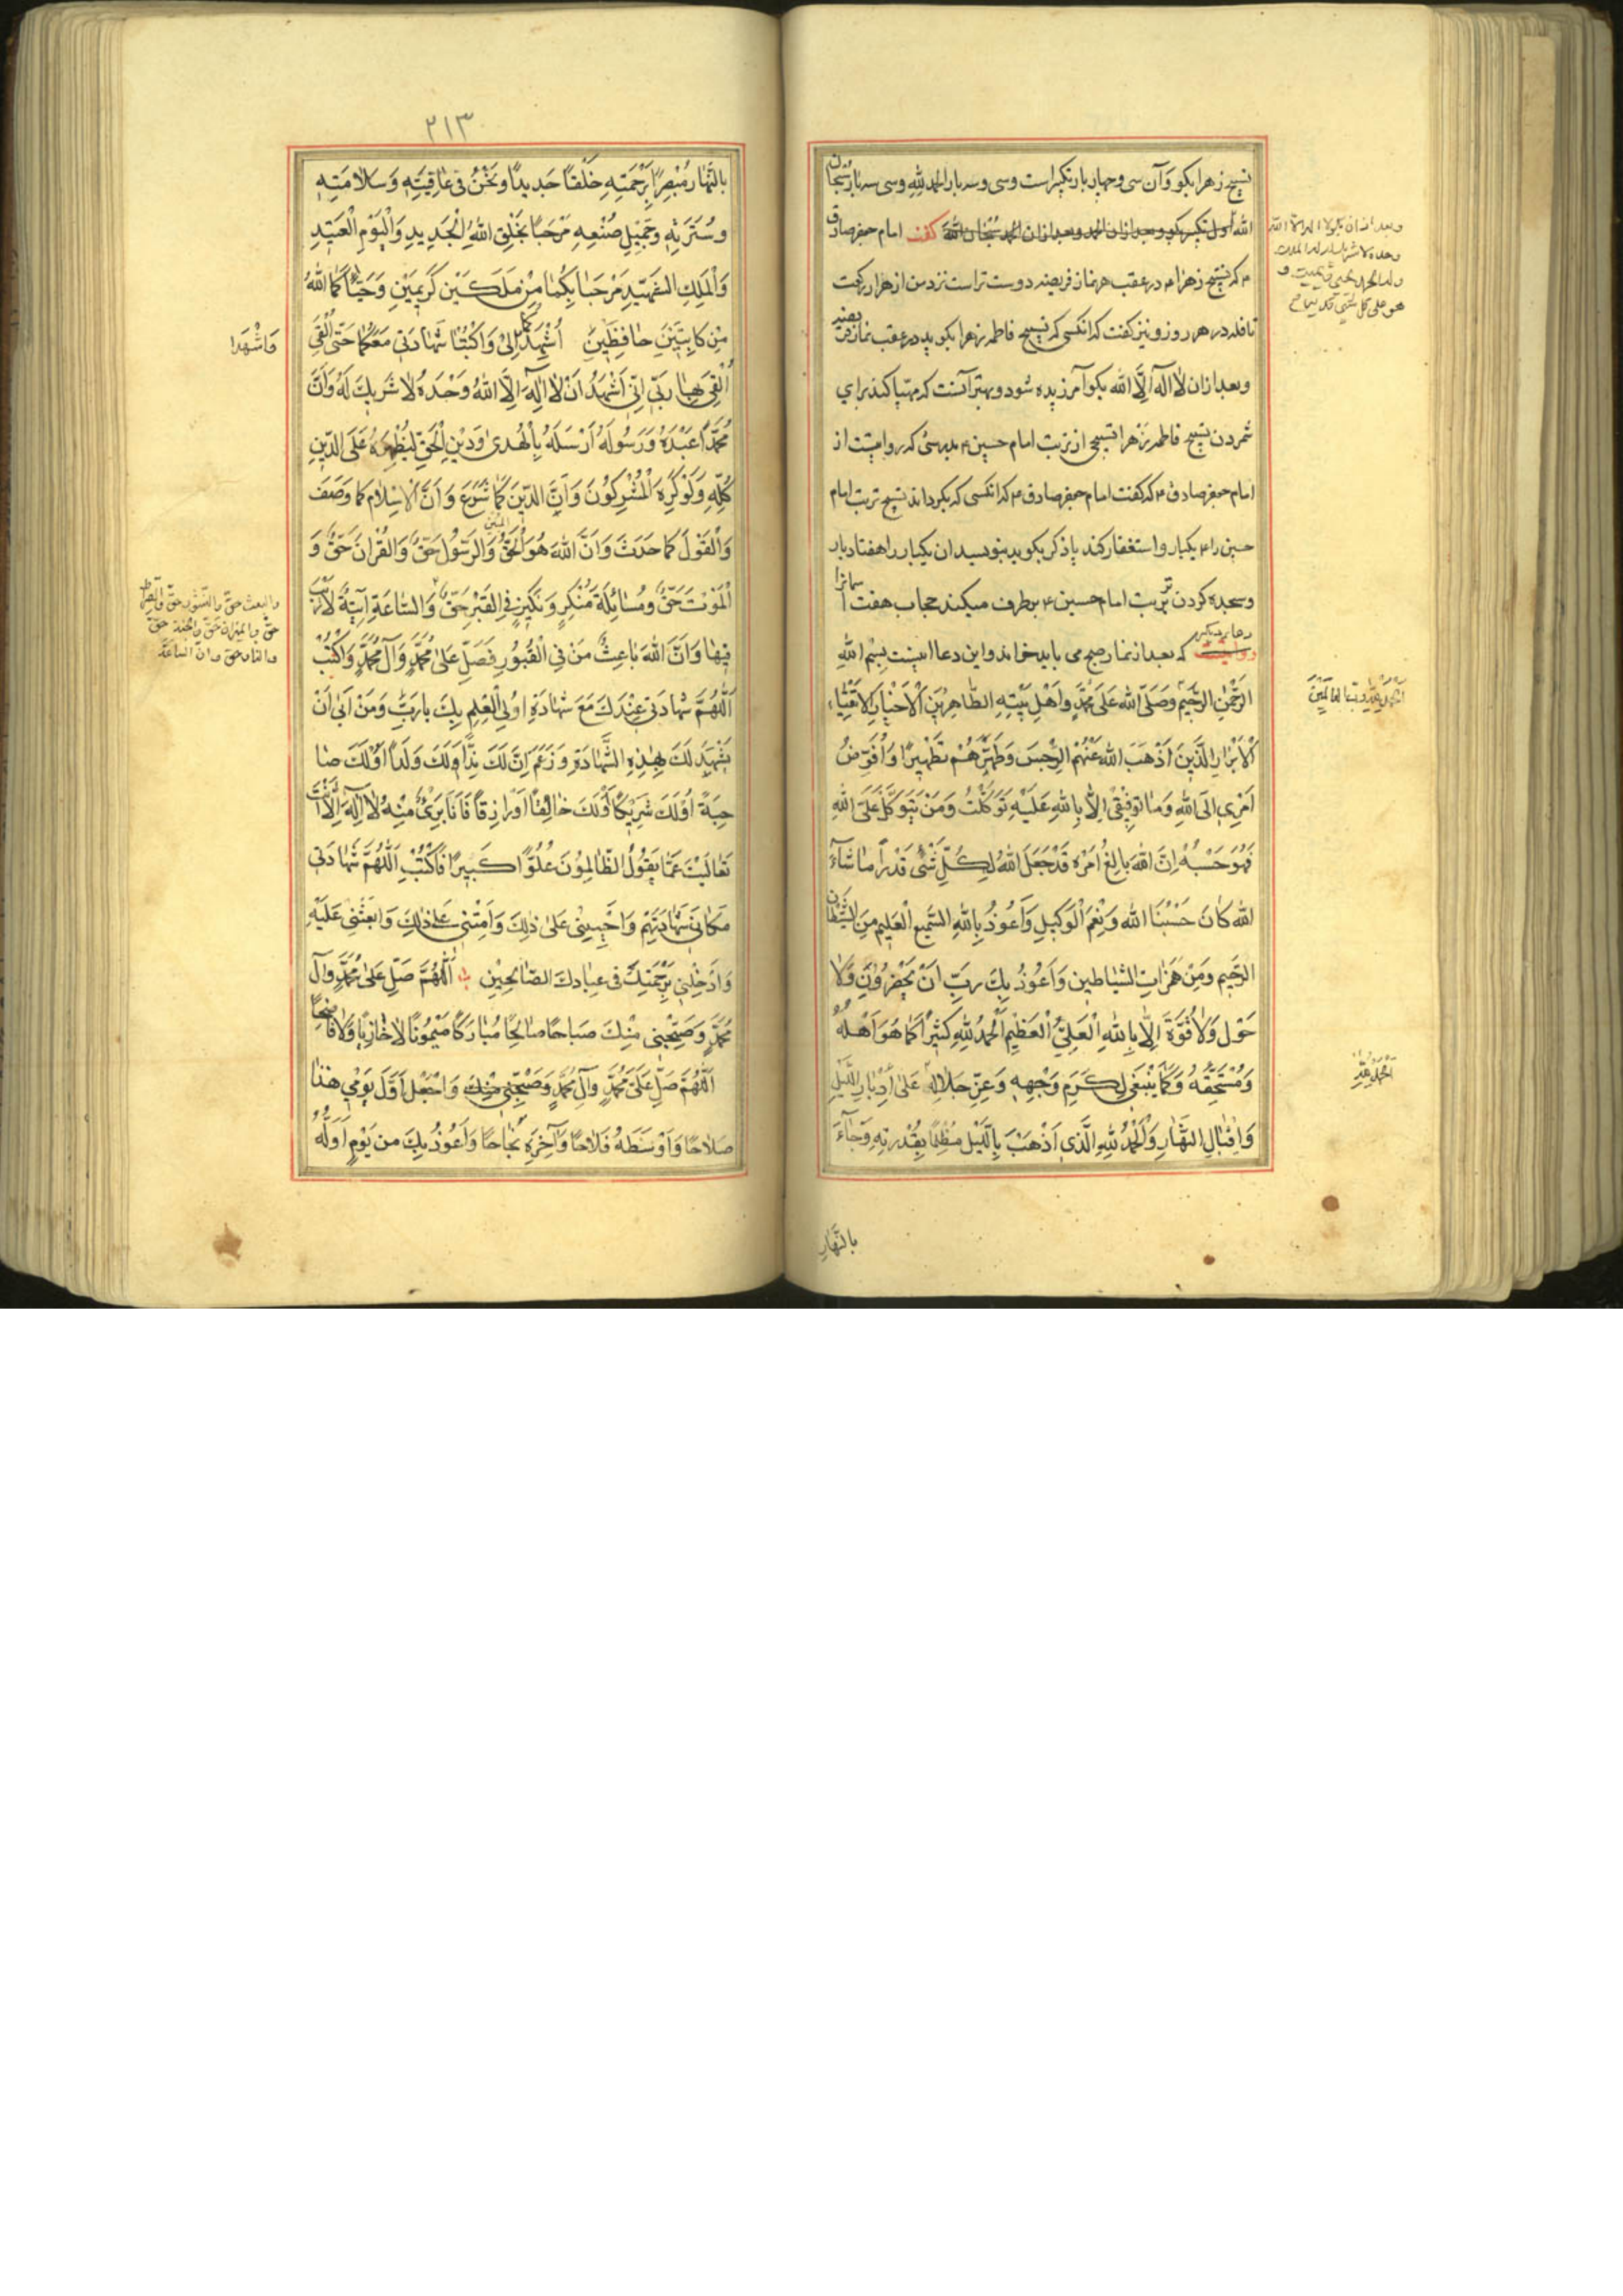 تسبیح زهرا بکو وآن سی وچهار بار تکبیراست وسی وسه بار الحمد لله وسی سه بار سُبْحَانَ
الله اول تکبیر بکو وبعد ازان الحمد وبعد ازان الحمد سُبْحَانَ الله کفت امام جعفر صادق
م که تسبیح زهرا م در عقب هر نماز فریضه دوست تر است نزد من از هزار رکعت
نافله در هر روز ونیز کفت که انکسی که تسبیح فاطمه زهرا بکوید در عقب نماز فریضه
وبعد ازان لا اله الا الله بکو آمرزیده شود وبهتر آنست که مهیا کند برای
شمردن تسبیح فاطمه زهرا تسبیحی از تربت امام حسین م بدرستی که روایتست از
امام جعفر صادق م که کفت امام جعفر صادق م که انکسی که بکرداند تسبیح تربت امام
حسین را م یکبار واستغفار کند یا ذکر بکوید بنویسد ان یکبار را هفتاد بار
وسجده کردن بر تربت امام حسین م بر طرف میکند حجاب هفت آسمانرا
روایتست که بعد از نماز صبح می باید خواند واین دعا اینست بِسْمِ اللهِ
الرَّحْمٰنِ الرَّحِیمِ وَصَلَّى الله عَلَى مُحَمَّدٍ وَاَهْلِ بَيْتِهِ الطَّاهِرِينَ الْاَخْيَارِ الْاَتْقِيَاءِ
الْاَبْرَارِ الَّذِينَ اَذْهَبَ اللهُ عَنْهُمُ الرِّجْسَ وَطَهَّرَهُمْ تَطْهِيرًا وَاُفَوِّضُ
اَمْرِي اِلَى اللهِ وَمَا تَوْفِيْقِيْ اِلَّا بِاللهِ عَلَيْهِ تَوَكَّلْتُ وَمَنْ يَتَوَكَّلْ عَلَى اللهِ
فَهُوَ حَسْبُهُ اِنَّ اللهَ بَالِغُ اَمْرِهِ قَدْ جَعَلَ اللهُ لِكُلِّ شَيْءٍ قَدْرًا مَا شَاءَ
الله كَانَ حَسْبُنَا الله وَنِعْمَ الْوَكِيلِ وَاَعُوذُ بِاللهِ السَّمِيعِ الْعَلِيمِ مِنَ الشَّيْطَانِ
الرَّجِيمِ وَمِنْ هَمَزَاتِ الشَّيَاطِينِ وَاَعُوذُ بِكَ رَبِّ اَنْ يَحْضُرُونِ وَلَا
حَوْلَ وَلَا قُوَّةَ اِلَّا بِاللهِ الْعَلِيِّ الْعَظِيمِ اَلْحَمْدُ لِلهِ كَثِيرًا كَمَا هُوَ اَهْلُهُ
وَمُسْتَحِقُّهُ وَكَمَا يَنْبَغِي لِكَرَمِ وَجْهِهِ وَعِزِّ جَلَالِهِ عَلَى اَدْبَارِ اللَّيْلِ
وَاِقْبَالِ النَّهَارِ وَاَلْحَمْدُ لِلهِ الَّذِي اَذْهَبَ بِاللَّيْلِ مُظْلِمًا بِقُدْرَتِهِ وَجَاءَ
بالنَّهَارِ
وبعد ازان بکو لا اله الا الله
وحده لا شریک له له الملک
وله الحمد یحیی ویمیت و
هو علی کل شیء قدیر
اَلْحَمْدُ لِلهِ رَبِّ الْعَالَمِينَ
اَلْحَمْدُ لِلهِ
٢١٣
بالنَّهَارِ مُبْصِرًا بِرَحْمَتِهِ خَلْقًا جَدِيدًا وَنَحْنُ فِي عَافِيَتِهِ وَسَلَامَتِهِ
وَسُتْرَتِهِ وَجَمِيْلِ صُنْعِهِ مَرْحَبًا بِخَلْقِ اللهِ الْجَدِيدِ وَالْيَوْمِ الْعَتِيدِ
وَالْمَلَكِ الشَّهِيدِ مَرْحَبًا بِكُمَا مِنْ مَلَكَيْنِ كَرِيمَيْنِ وَحَيَّاكُمَا اللهُ
مِنْ كَاتِبَيْنِ حَافِظَيْنِ اُشْهِدُكُمَا لِي وَاكْتُبَا شَهَادَتِي مَعَكُمَا حَتَّى اَلْقَى
اَلْقَى بِهَا رَبِّي اِنِّي اَشْهَدُ اَنْ لَا اِلٰهَ اِلَّا اللهُ وَحْدَهُ لَا شَرِيكَ لَهُ وَاَنَّ
مُحَمَّدًا عَبْدُهُ وَرَسُولُهُ اَرْسَلَهُ بِالْهُدَى وَدِيْنِ الْحَقِّ لِيُظْهِرَهُ عَلَى الدِّينِ
كُلِّهِ وَلَوْ كَرِهَ الْمُشْرِكُونَ وَاَنَّ الدِّيْنَ كَمَا شَرَعَ وَاَنَّ الْاِسْلَامَ كَمَا وَصَفَ
وَالْقَوْلَ كَمَا حَدَثَ وَاَنَّ اللهَ هُوَ الْحَقُّ المُبِينُ وَالرَّسُولَ حَقٌّ وَالْقُرْانَ حَقٌّ وَ
الْمَوْتَ حَقٌّ وَمُسَائَلَةَ مُنْكِرٍ وَنَكِيْرٍ فِي الْقَبْرِ حَقٌّ وَالسَّاعَةِ اٰتِيَةٌ لَا رَيْبَ
فِيْهَا وَاَنَّ اللهَ بَاعِثٌ مَنْ فِي الْقُبُورِ فَصَلِّ عَلَى مُحَمَّدٍ وَآلِ مُحَمَّدٍ وَاكْتُبْ
اَللّٰهُمَّ شَهَادَتِي عِنْدَكَ مَعَ شَهَادَةِ اُولِي الْعِلْمِ بِكَ يَا رَبِّ وَمَنْ اَبٰى اَنْ
يَشْهَدَ لَكَ بِهٰذِهِ الشَّهَادَةِ وَزَعَمَ اِنَّ لَكَ نِدًّا اَوْ لَكَ وَلَدًا اَوْ لَكَ صَا
حِبَةً اَوْ لَكَ شَرِيْكًا اَوْ لَكَ خَالِقًا اَوْ رَازِقًا فَاَنَا بَرِيْءٌ مِنْهُ لَا اِلٰهَ اِلَّا اَنْتَ
تَعَالَيْتَ عَمَّا يَقُولُ الظَّالِمُوْنَ عُلُوًّا كَبِيرًا فَاكْتُبْ اَللّٰهُمَّ شَهَادَتِي
مَكَانَ شَهَادَتِهِمْ وَاَحْيِيْنِي عَلَى ذٰلِكَ وَاَمِتْنِي عَلَى ذٰلِكَ وَابْعَثْنِي عَلَيْهِ
وَاَدْخِلْنِي بِرَحْمَتِكَ فِي عِبَادِكَ الصَّالِحِيْنِ اَللّٰهُمَّ صَلِّ عَلَى مُحَمَّدٍ وَآلِ
مُحَمَّدٍ وَصَبِّحْنِي مِنْكَ صَبَاحًا صَالِحًا مُبَارَكًا مَيْمُونًا لَا خَازِيًا وَلَا فَاضِحًا
اَللّٰهُمَّ صَلِّ عَلَى مُحَمَّدٍ وَآلِ مُحَمَّدٍ وَصَبِّحْنِي مِنْكَ وَاجْعَلْ اَوَّلَ يَوْمِي هٰذَا
صَلَاحًا وَاَوْسَطَهُ فَلَاحًا وَآخِرَهُ نَجَاحًا وَاَعُوذُ بِكَ مِنْ يَوْمٍ اَوَّلُهُ
وَاشْهَدَا
والبعث حقّ والنّشور حقّ والصراط
حقّ والمیزان حَقّ والجنة حقّ
والنار حق وانّ الساعة